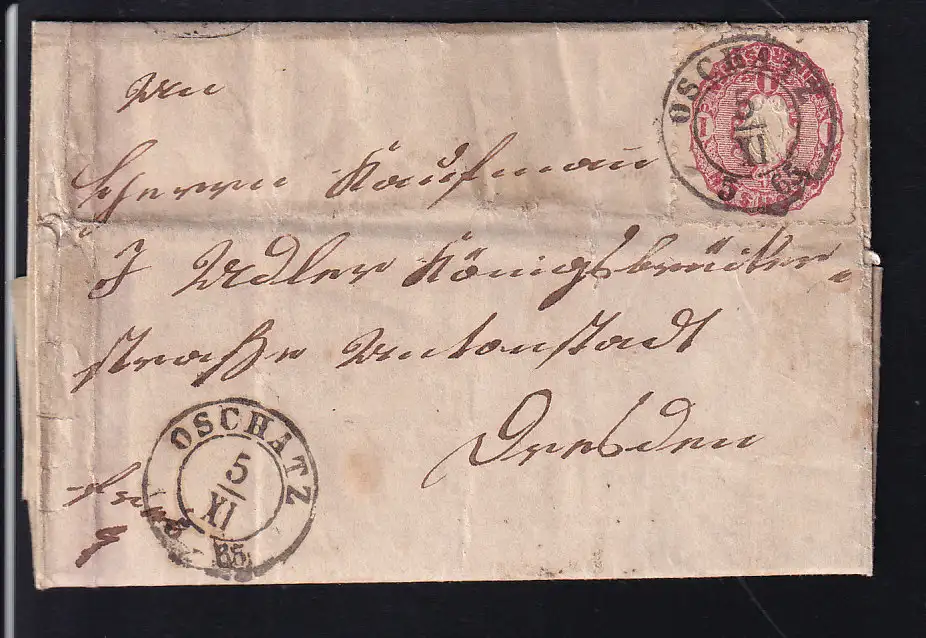 OSCHATZ
5
XI
65
An
Herrn Kaufmann
J Adler Königsbrücker-
straße Antonstadt
Dresden
OSCHATZ
5
XI
65